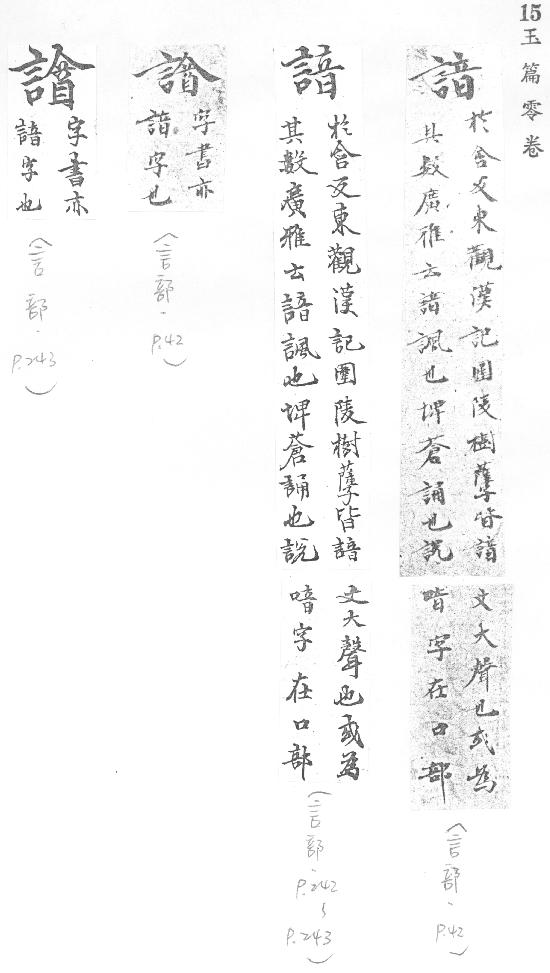 15玉篇零卷
諳
於含反東觀漢記園陵樹孽皆諳
其數廣雅云諳諷也埤蒼誦也說
文大聲也或為
喑字在口部
(言部、P.42)
諳
於含反東觀漢記園陵樹孽皆諳
其數廣雅云諳諷也埤蒼誦也說
文大聲也或為
喑字在口部
(言部、P.242~P.243)
字書亦
諳字也
(言部、P.42)
字書亦
諳字也
(言部、P.243)